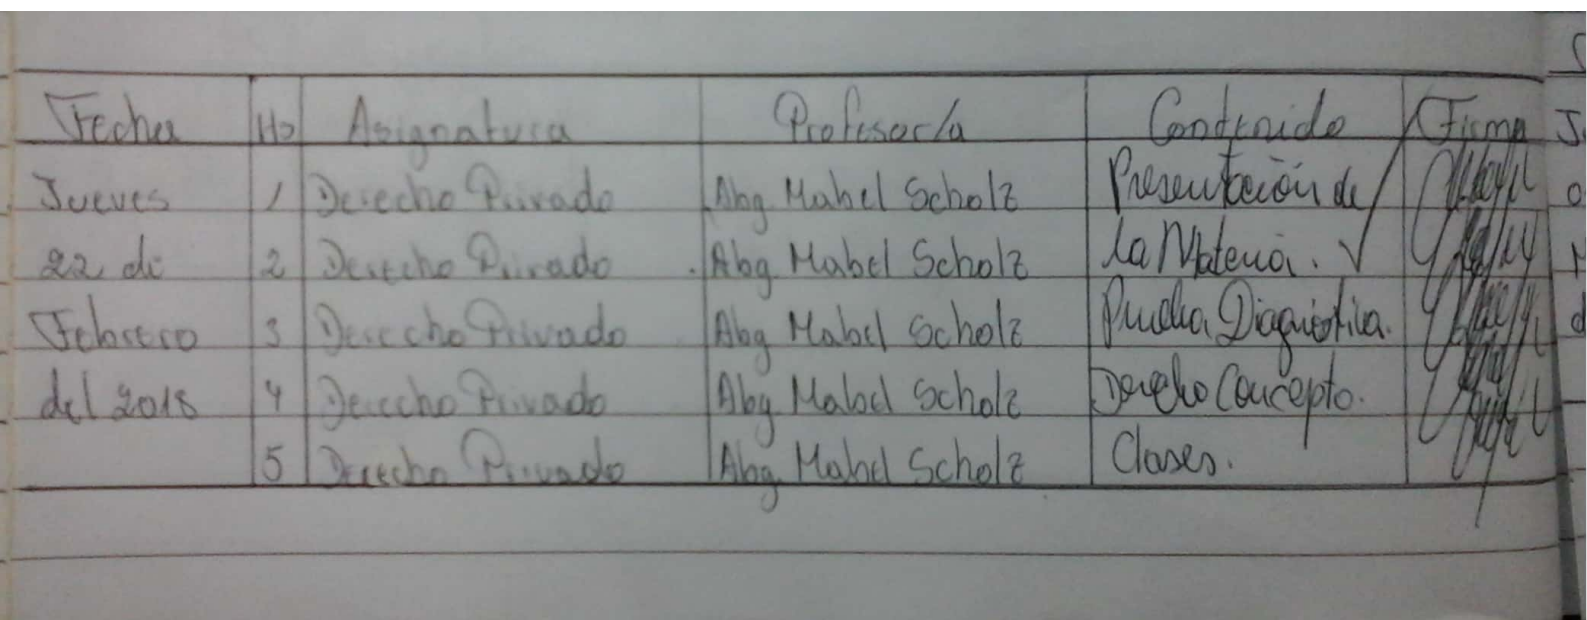 Fecha Ho Asignatura Profesor/a Contenido Firma
Jueves 1 Derecho Privado Abg Mabel Scholz Presentación de
22 de 2 Derecho Privado Abg Mabel Scholz la Materia. ✓
Febrero 3 Derecho Privado Abg Mabel Scholz Prueba Diagnóstica.
del 2018 4 Derecho Privado Abg Mabel Scholz Derecho Concepto.
5 Derecho Privado Abg Mabel Scholz Clases.